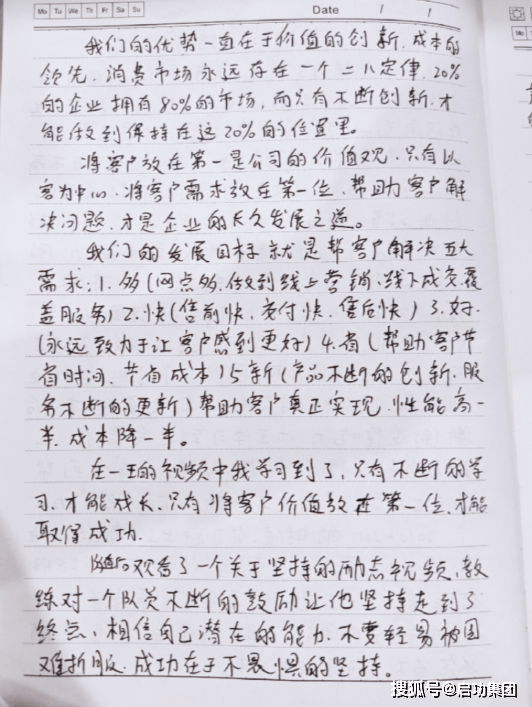 Mo Tu We Th Fr Sa Su Date / /
我们的优势一直在于价值的创新.成本的
领先.消费市场永远存在一个二八定律.20%
的企业拥有80%的市场,而只有不断创新.才
能做到保持在这20%的位置里。
将客户放在第一是公司的价值观.只有以
客为中心.将客户需求放在第一位.帮助客户解
决问题.才是企业的长久发展之道。
我们的发展目标就是帮客户解决五大
需求:1.多(网点多.做到线上营销.线下成交.覆
盖服务)2.快(售前快.交付快.售后快)3.好.
(永远致力于让客户感到更好)4.省(帮助客户节
省时间.节省成本)5新(产品不断的创新.服
务不断的更新)帮助客户真正实现.性能高一
半.成本降一半。
在一王的视频中我学习到了,只有不断的学
习.才能成长.只有将客户价值放在第一位.才能
取得成功.
随后观看了一个关于坚持的励志视频,教
练对一个队员不断的鼓励让他坚持走到了
终点,相信自己潜在的能力.不要轻易被困
难折服.成功在于不畏惧的坚持。
搜狐号@启功集团